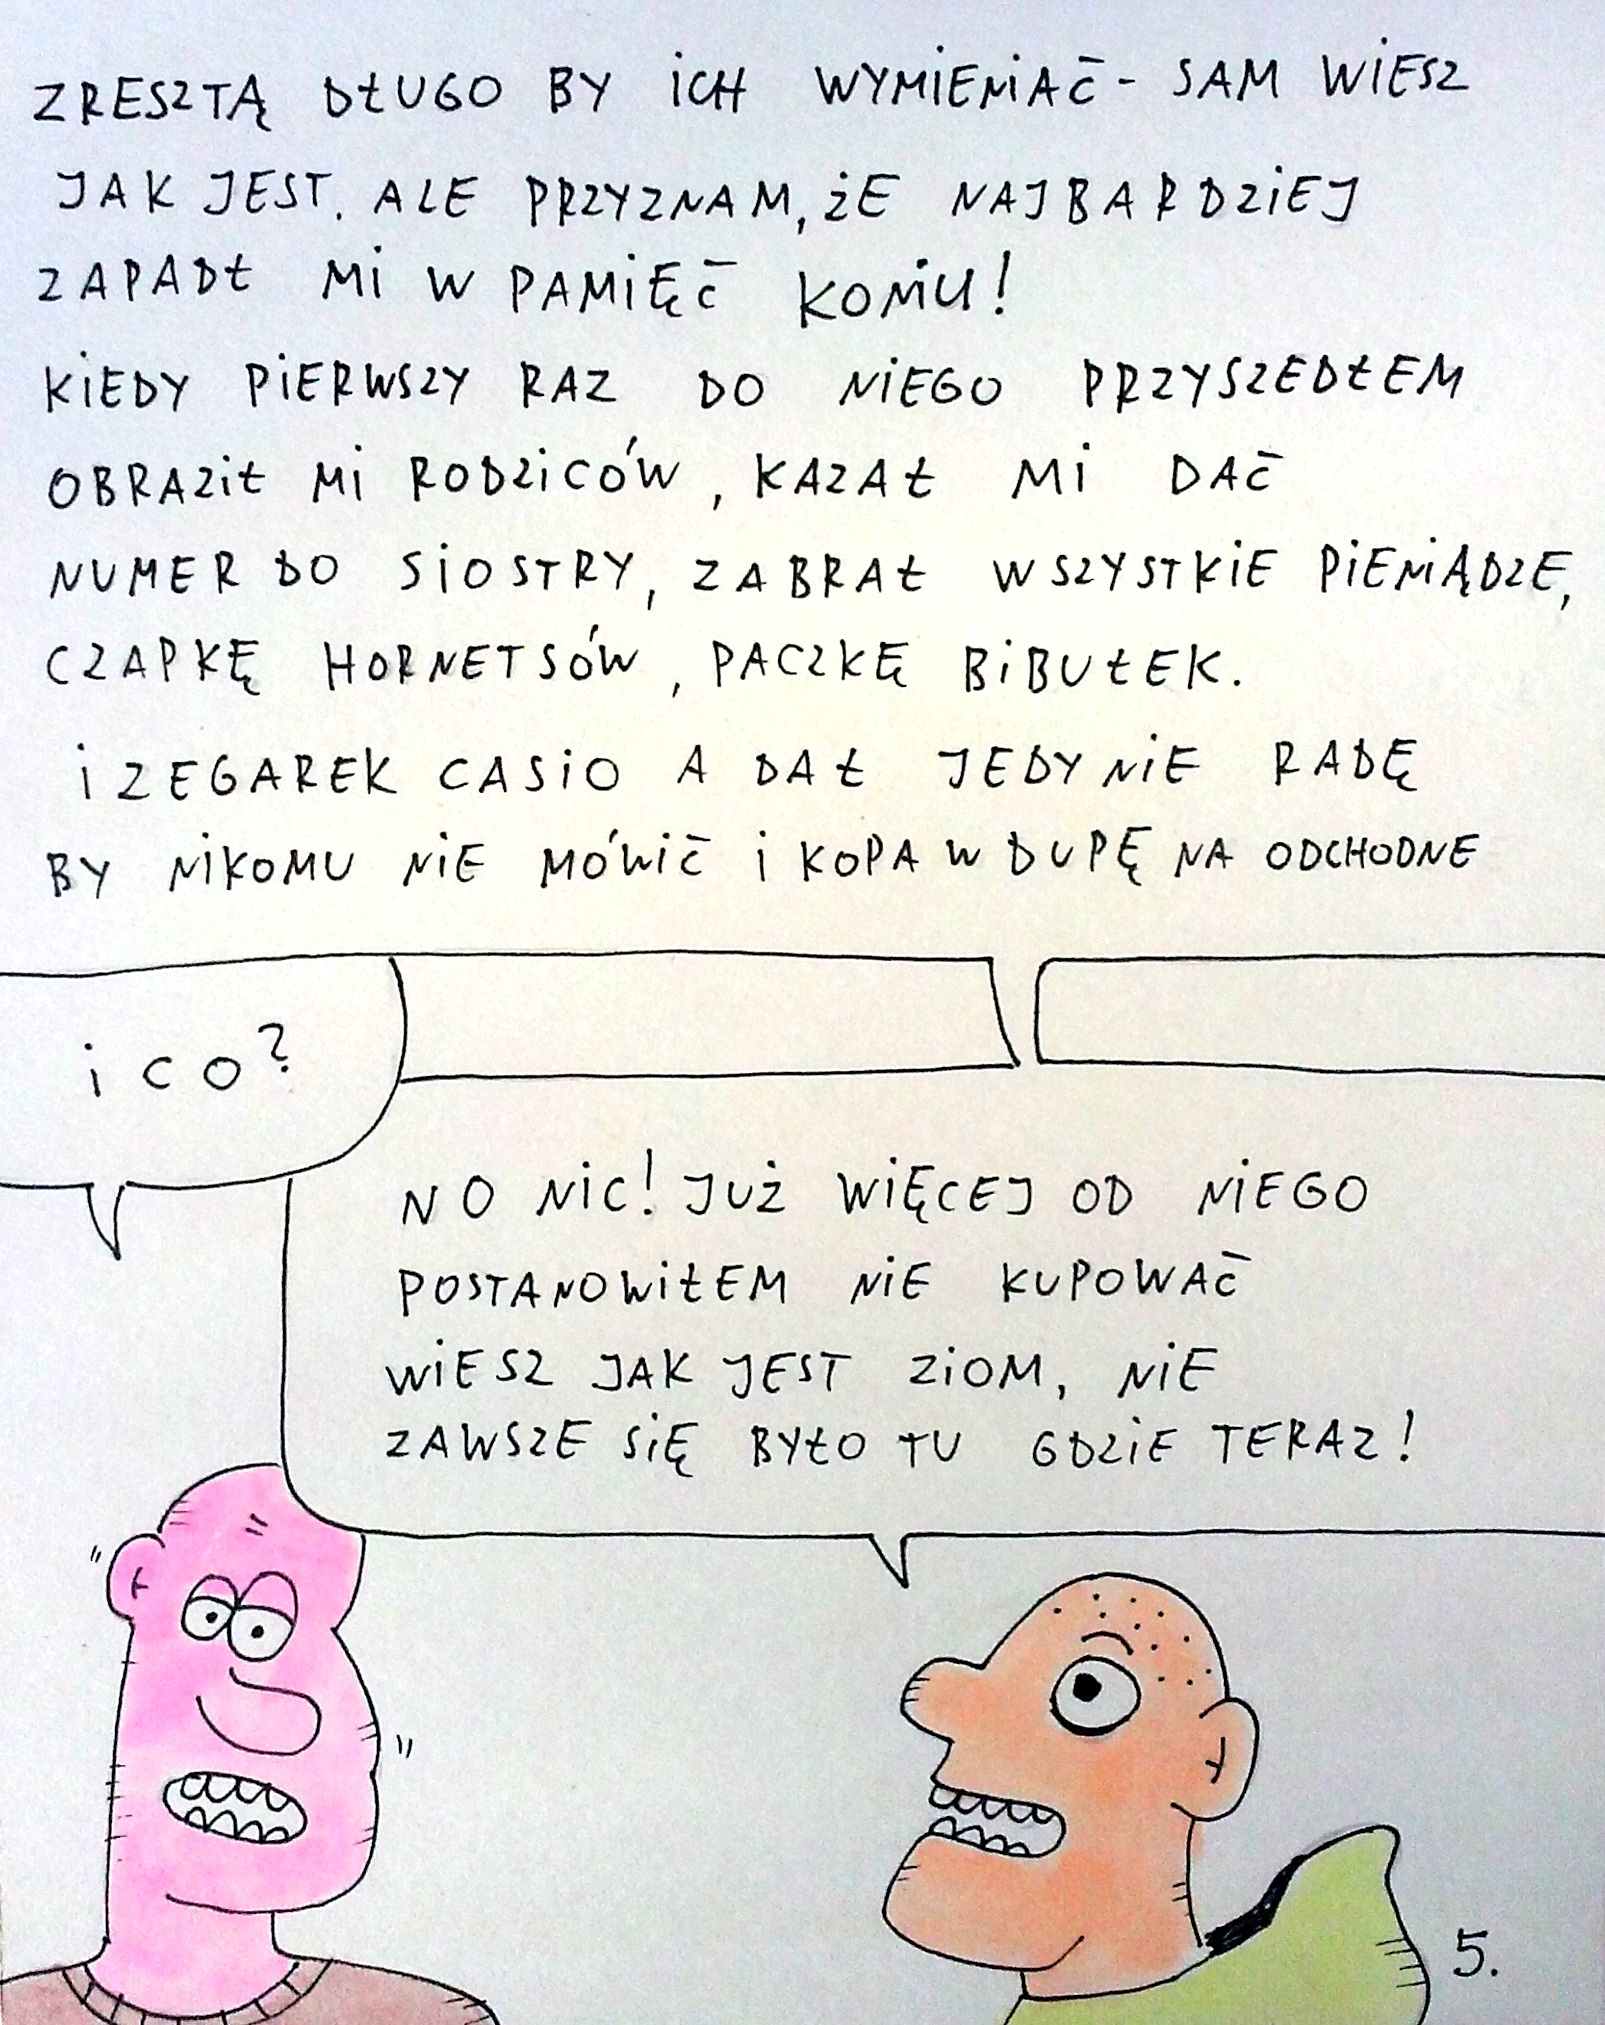 ZRESZTĄ DŁUGO BY ICH WYMIENIAĆ - SAM WIESZ
JAK JEST. ALE PRZYZNAM, ŻE NAJBARDZIEJ
ZAPADŁ MI W PAMIĘĆ KONIU!
KIEDY PIERWSZY RAZ DO NIEGO PRZYSZEDŁEM
OBRAZIŁ MI RODZICÓW, KAZAŁ MI DAĆ
NUMER DO SIOSTRY, ZABRAŁ WSZYSTKIE PIENIĄDZE,
CZAPKĘ HORNETSÓW, PACZKĘ BIBUŁEK.
I ZEGAREK CASIO A DAŁ JEDYNIE RADĘ
BY NIKOMU NIE MÓWIĆ I KOPA W DUPĘ NA ODCHODNE
I CO?
NO NIC! JUŻ WIĘCEJ OD NIEGO
POSTANOWIŁEM NIE KUPOWAĆ
WIESZ JAK JEST ZIOM, NIE
ZAWSZE SIĘ BYŁO TU GDZIE TERAZ!
5.